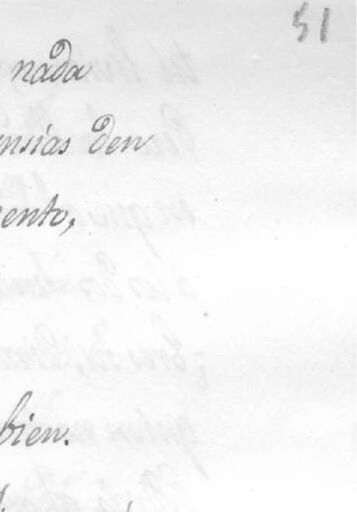 51
nada
ansias den
ento,
bien.